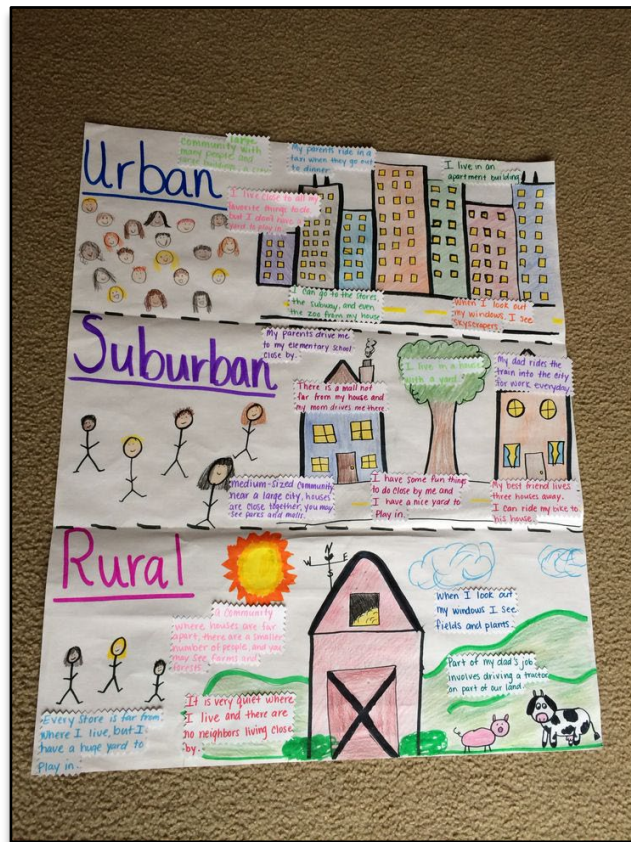 Urban
large
community with
many people and
My parents ride in a
taxi when they go out
to dinner.
I live in an
apartment building.
I live close to all my
favorite things to do,
but I don't have a
yard to play in.
I can go to the stores,
the subway, and even
the zoo from my house
When I look out
my windows, I see
skyscrapers.
Suburban
My parents drive me
to my elementary school
close by.
There is a mall not
far from my house and
my mom drives me there.
I live in a house
with a yard.
My dad rides the
train into the city
for work everyday.
medium-sized community
near a large city, houses
are close together, you may
see parks and malls.
I have some fun things
to do close by me and
I have a nice yard to
play in.
My best friend lives
three houses away.
I can ride my bike to
his house.
Rural
N
W E
S
a community
where houses are far
apart, there are a smaller
number of people, and you
may see farms and
forests.
When I look out
my windows I see
fields and plants.
Part of my dad's job
involves driving a tractor
on part of our land.
It is very quiet where
I live and there are
no neighbors living close
by.
Every store is far from
where I live, but I
have a huge yard to
play in.